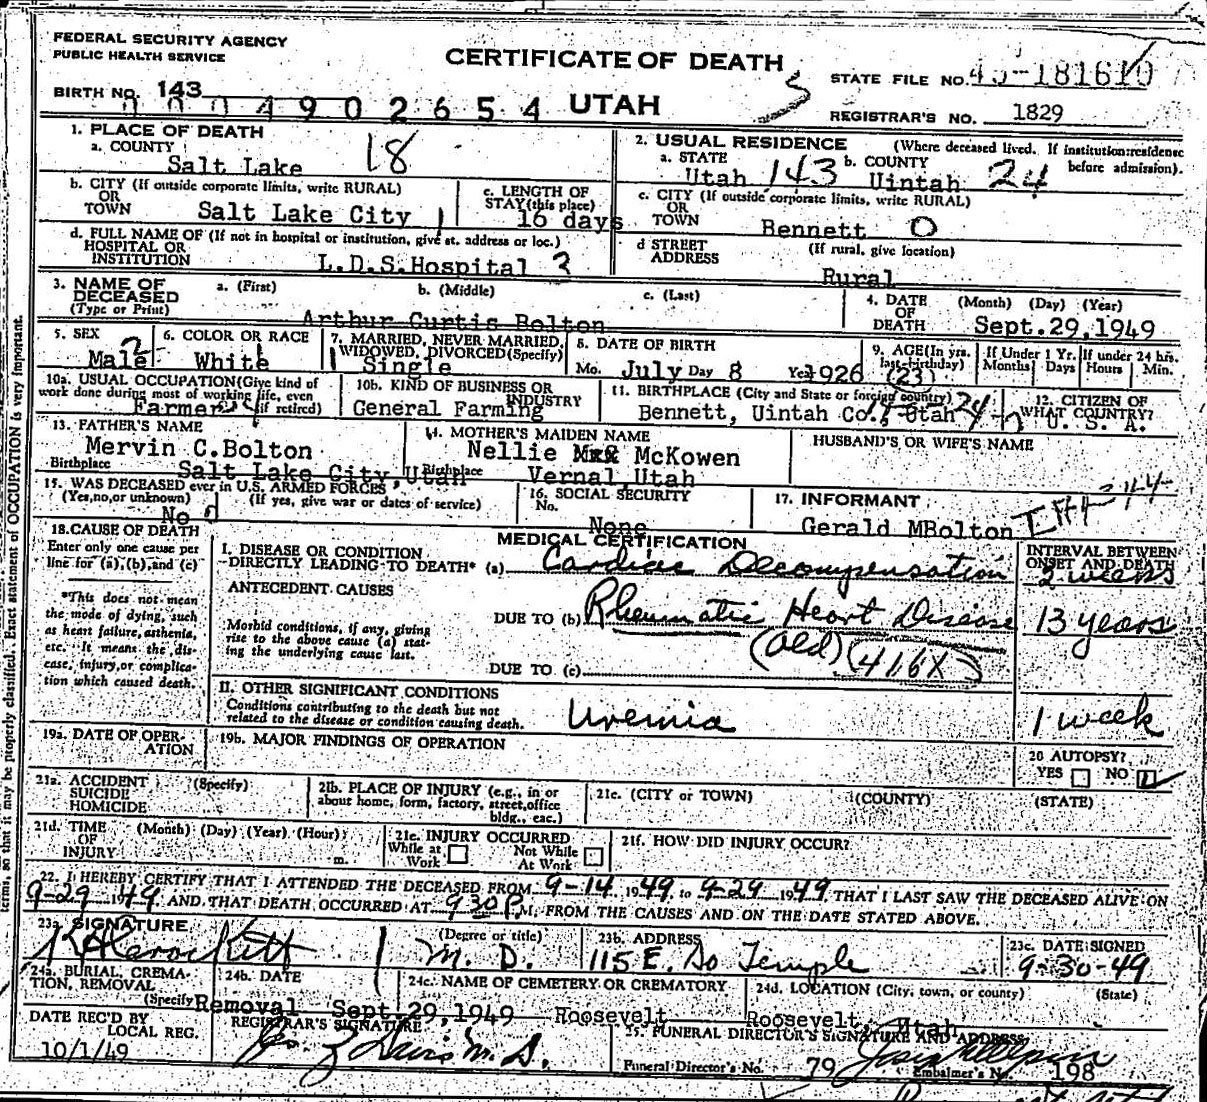 FEDERAL SECURITY AGENCY
PUBLIC HEALTH SERVICE
CERTIFICATE OF DEATH
STATE FILE NO. 45-181610
BIRTH NO. 143
0004902654 UTAH
REGISTRAR'S NO. 1829
1. PLACE OF DEATH
a. COUNTY
Salt Lake 18
2. USUAL RESIDENCE (Where deceased lived. If institution:residence before admission).
a. STATE b. COUNTY
Utah 143 Uintah 24
b. CITY (If outside corporate limits, write RURAL)
OR
TOWN Salt Lake City
c. LENGTH OF
STAY (this place)
16 days
c. CITY (If outside corporate limits, write RURAL)
OR
TOWN Bennett 0
d. FULL NAME OF (If not in hospital or institution, give st. address or loc.)
HOSPITAL OR
INSTITUTION L.D.S.Hospital
d STREET (If rural, give location)
ADDRESS
Rural
3. NAME OF
DECEASED
(Type or Print)
a. (First) b. (Middle) c. (Last)
Arthur Curtis Bolton
4. DATE (Month) (Day) (Year)
OF
DEATH Sept.29,1949
5. SEX
Male 2
6. COLOR OR RACE
White
7. MARRIED, NEVER MARRIED,
WIDOWED, DIVORCED(Specify)
Single
8. DATE OF BIRTH
Mo. July Day 8 Yr. 1926
9. AGE(In yrs.
last birthday)
(23)
If Under 1 Yr.
Months Days
If under 24 hrs.
Hours Min.
10a. USUAL OCCUPATION(Give kind of
work done during most of working life, even
if retired)
Farmer
10b. KIND OF BUSINESS OR
INDUSTRY
General Farming
11. BIRTHPLACE (City and State or foreign country)
Bennett, Uintah Co. Utah 24
12. CITIZEN OF
WHAT COUNTRY?
U. S. A.
13. FATHER'S NAME
Mervin C.Bolton
Birthplace Salt Lake City,Utah
14. MOTHER'S MAIDEN NAME
Nellie McKowen
Birthplace Vernal,Utah
HUSBAND'S OR WIFE'S NAME
15. WAS DECEASED ever in U.S. ARMED FORCES
(Yes,no,or unknown) (If yes, give war or dates of service)
No
16. SOCIAL SECURITY
No.
None
17. INFORMANT
Gerald MBolton
18.CAUSE OF DEATH
Enter only one cause per
line for (a),(b),and (c)
*This does not mean
the mode of dying, such
as heart failure, asthenia,
etc. It means the dis-
ease, injury,or complica-
tion which caused death.
MEDICAL CERTIFICATION
I. DISEASE OR CONDITION
DIRECTLY LEADING TO DEATH* (a) Cardiac Decompensation
INTERVAL BETWEEN
ONSET AND DEATH
2 weeks
ANTECEDENT CAUSES
Morbid conditions, if any, giving
rise to the above cause (a) stat-
ing the underlying cause last.
DUE TO (b) Rheumatic Heart Disease 13 years
(old) (416X)
DUE TO (c)
II. OTHER SIGNIFICANT CONDITIONS
Conditions contributing to the death but not
related to the disease or condition causing death.
Uremia 1 week
19a. DATE OF OPER-
ATION
19b. MAJOR FINDINGS OF OPERATION
20 AUTOPSY?
YES NO
21a. ACCIDENT (Specify)
SUICIDE
HOMICIDE
21b. PLACE OF INJURY (e.g., in or
about home, form, factory, street,office
bldg., eac.)
21c. (CITY or TOWN) (COUNTY) (STATE)
21d. TIME (Month) (Day) (Year) (Hour)
OF
INJURY m.
21e. INJURY OCCURRED
While at Not While
Work At Work
21f. HOW DID INJURY OCCUR?
22. I HEREBY CERTIFY THAT I ATTENDED THE DECEASED FROM 9-14 1949 to 9-29 1949 THAT I LAST SAW THE DECEASED ALIVE ON
9-29 1949 AND THAT DEATH OCCURRED AT 930 P.M. FROM THE CAUSES AND ON THE DATE STATED ABOVE.
23a SIGNATURE
(Degree or title)
M. D.
23b. ADDRESS
115 E. So Temple
23c. DATE SIGNED
9-30-49
24a. BURIAL, CREMA-
TION, REMOVAL
(Specify) Removal
24b. DATE
Sept.29,1949
24c. NAME OF CEMETERY OR CREMATORY
Roosevelt
24d. LOCATION (City, town, or county) (State)
Roosevelt, Utah
DATE REC'D BY
LOCAL REG.
10/1/49
REGISTRAR'S SIGNATURE
25. FUNERAL DIRECTOR'S SIGNATURE AND ADDRESS
Funeral Director's No. 79 Embalmer's No. 198
terms, so that it may be properly classified. Exact statement of OCCUPATION is very important.